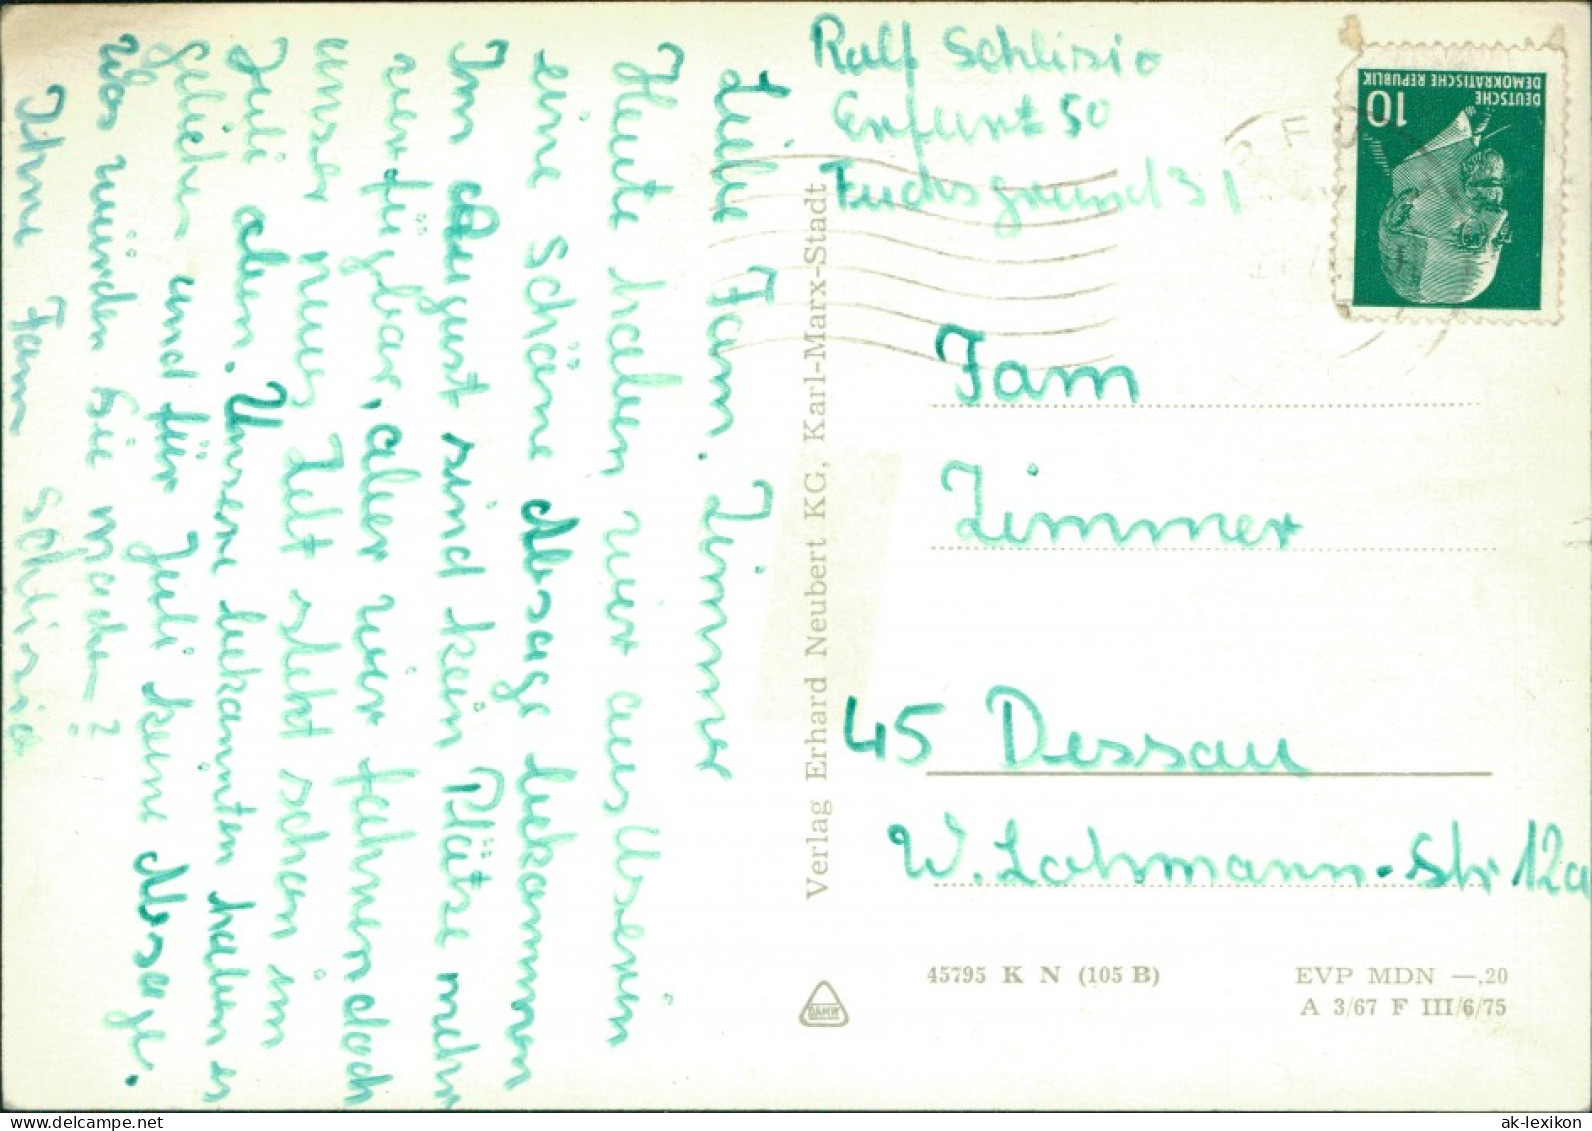 Ralf Schlisio
Erfurt 50
Fuchsgrund 31
Liebe Fam. Zimmer
Heute haben wir aus Userin
eine schöne Absage bekommen
Im August sind kein Plätze mehr
verfügbar, aber wir fahren doch
unser neues Zelt steht schon im
Juli oben. Unsere bekannten haben es
und für Juli keine Absage.
Was würden Sie machen?
Ihre Fam Schlisio
DEUTSCHE
DEMOKRATISCHE REPUBLIK
10
Fam
Zimmer
45 Dessau
W. Lohmann-Str 12a
Verlag Erhard Neubert KG, Karl-Marx-Stadt
DAMW
45795 K N (105 B)
EVP MDN —,20
A 3/67 F III/6/75
ak-lexikon